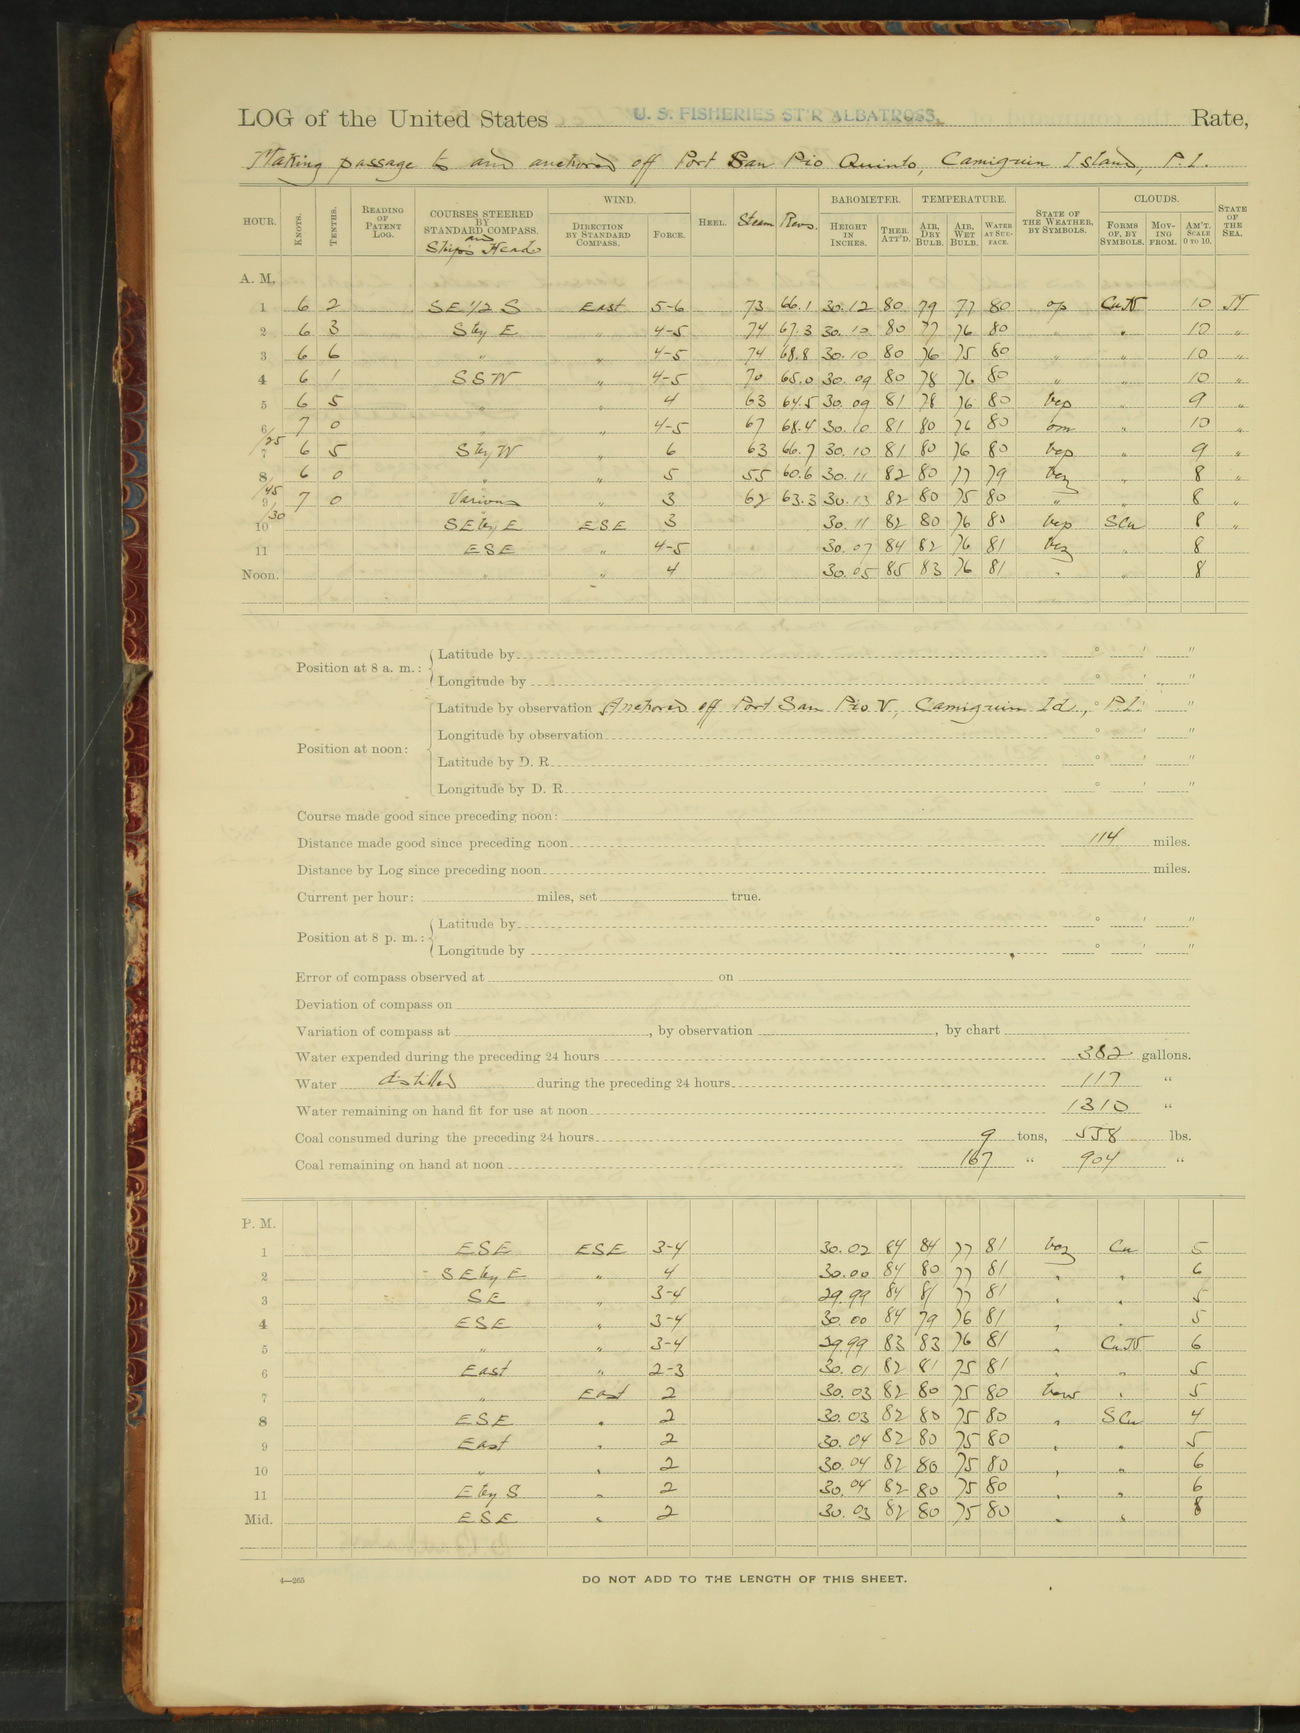 LOG of the United States U. S. FISHERIES ST'R ALBATROSS. Rate,
Making passage to and anchored off Port San Pio Quinto, Camiguin Island, P. I.
HOUR. KNOTS. TENTHS. READING OF PATENT LOG. COURSES STEERED BY STANDARD COMPASS. and Ship's Head WIND. DIRECTION BY STANDARD COMPASS. FORCE. HEEL. Steam Revs. BAROMETER. HEIGHT IN INCHES. THER. ATT'D. TEMPERATURE. AIR, DRY BULB. AIR, WET BULB. WATER AT SURFACE. STATE OF THE WEATHER, BY SYMBOLS. CLOUDS. FORMS OF, BY SYMBOLS. MOVING FROM. AM'T. SCALE 0 TO 10. STATE OF THE SEA.
A. M.
1 6 2 SE 1/2 S East 5-6 73 66.1 30.12 80 79 77 80 op Cu.N 10 M
2 6 3 S by E " 4-5 74 67.3 30.10 80 77 76 80 " " 10 "
3 6 6 " " 4-5 74 68.8 30.10 80 76 75 80 " " 10 "
4 6 1 SSW " 4-5 70 65.0 30.09 80 78 76 80 " " 10 "
5 6 5 " " 4 63 64.5 30.09 81 78 76 80 bcp " 9 "
6 7 0 " " 4-5 67 68.4 30.10 81 80 76 80 om " 10 "
/25
7 6 5 S by W " 6 63 66.7 30.10 81 80 76 80 bcp " 9 "
8 6 0 " " 5 55 60.6 30.11 82 80 77 79 bcq " 8 "
/45
9 7 0 Various " 3 62 63.3 30.13 82 80 75 80 " " 8 "
/30
10 SE by E ESE 3 30.11 82 80 76 80 bcp SCu 8 "
11 ESE " 4-5 30.07 84 82 76 81 bcq " 8
Noon. " " 4 30.05 85 83 76 81 " " 8
Position at 8 a. m.: Latitude by ° ' "
Longitude by ° ' "
Position at noon: Latitude by observation Anchored off Port San Pio V, Camiguin Id., P.I. ° ' "
Longitude by observation ° ' "
Latitude by D. R. ° ' "
Longitude by D. R. ° ' "
Course made good since preceding noon:
Distance made good since preceding noon 114 miles.
Distance by Log since preceding noon miles.
Current per hour: miles, set true.
Position at 8 p. m.: Latitude by ° ' "
Longitude by ° ' "
Error of compass observed at on
Deviation of compass on
Variation of compass at , by observation , by chart
Water expended during the preceding 24 hours 382 gallons.
Water distilled during the preceding 24 hours 117 "
Water remaining on hand fit for use at noon 1310 "
Coal consumed during the preceding 24 hours 9 tons, 558 lbs.
Coal remaining on hand at noon 167 " 904 "
P. M.
1 ESE ESE 3-4 30.02 84 84 77 81 bcq Cu 5
2 SE by E " 4 30.00 84 80 77 81 " " 6
3 SE " 3-4 29.99 84 81 77 81 " " 5
4 ESE " 3-4 30.00 84 79 76 81 " " 5
5 " " 3-4 29.99 83 83 76 81 " Cu.N 6
6 East " 2-3 30.01 82 81 75 81 " " 5
7 " East 2 30.03 82 80 75 80 " 5
8 ESE " 2 30.03 82 80 75 80 " SCu 4
9 East " 2 30.04 82 80 75 80 " " 5
10 " " 2 30.04 82 80 75 80 " " 6
11 E by S " 2 30.04 82 80 75 80 " " 6
Mid. ESE " 2 30.03 82 80 75 80 " " 8
4—265 DO NOT ADD TO THE LENGTH OF THIS SHEET.